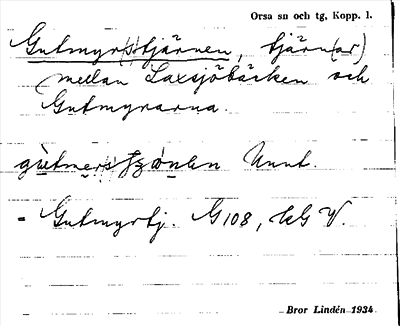 Orsa sn och tg, Kopp. l.
Gutmyr(s)tjärnen, tjärn(ar)
mellan Laxsjöbäcken och
Gutmyrarna.
Unnt.
- Gutmyrtj. G108, kG V.
Bror Lindén 1934